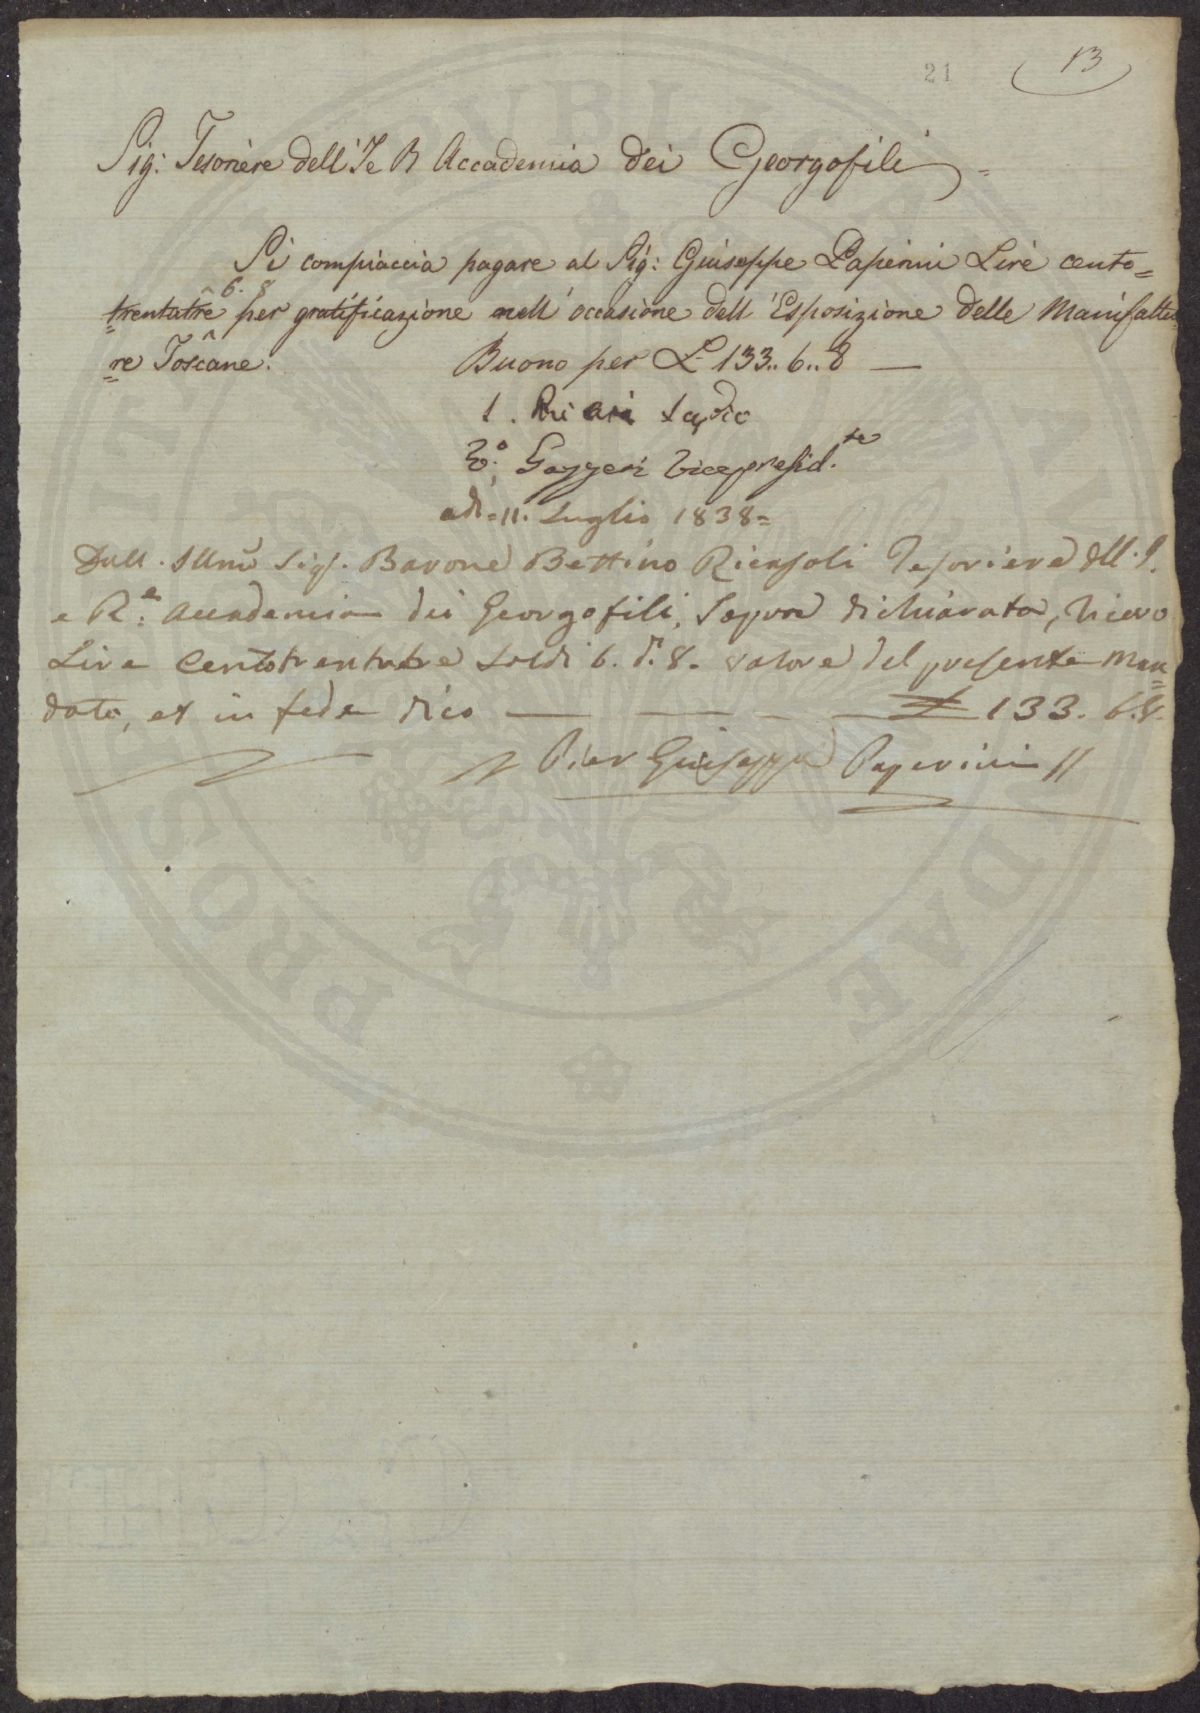 21
13
Sig: Tesoriere dell'I e R Accademia dei Georgofili =
Si compiaccia pagare al Sig: Giuseppe Paperini Lire cento=
6. 8
=trentatre per gratificazione nell'occasione dell'Esposizione delle Manifattu
=re Toscane.
Buono per L 133.. 6.. 8 —
1.
2.° Gazzeri Vicepresid.te
adì = 11. Luglio 1838 =
Dall. Illmo Sig. Barone Bettino Ricasoli Tesoriere dll. I.
e R.e Accademia dei Georgofili, Sopra dichiarata, Ricevo
Lire Centotrentatre soldi 6. d. 8. valore del presente Man
=dato, et in fede dico — — — — £ 133. 6.8.
Pier Giuseppe Paperini //
PUBLICAE
PROSPERITATI